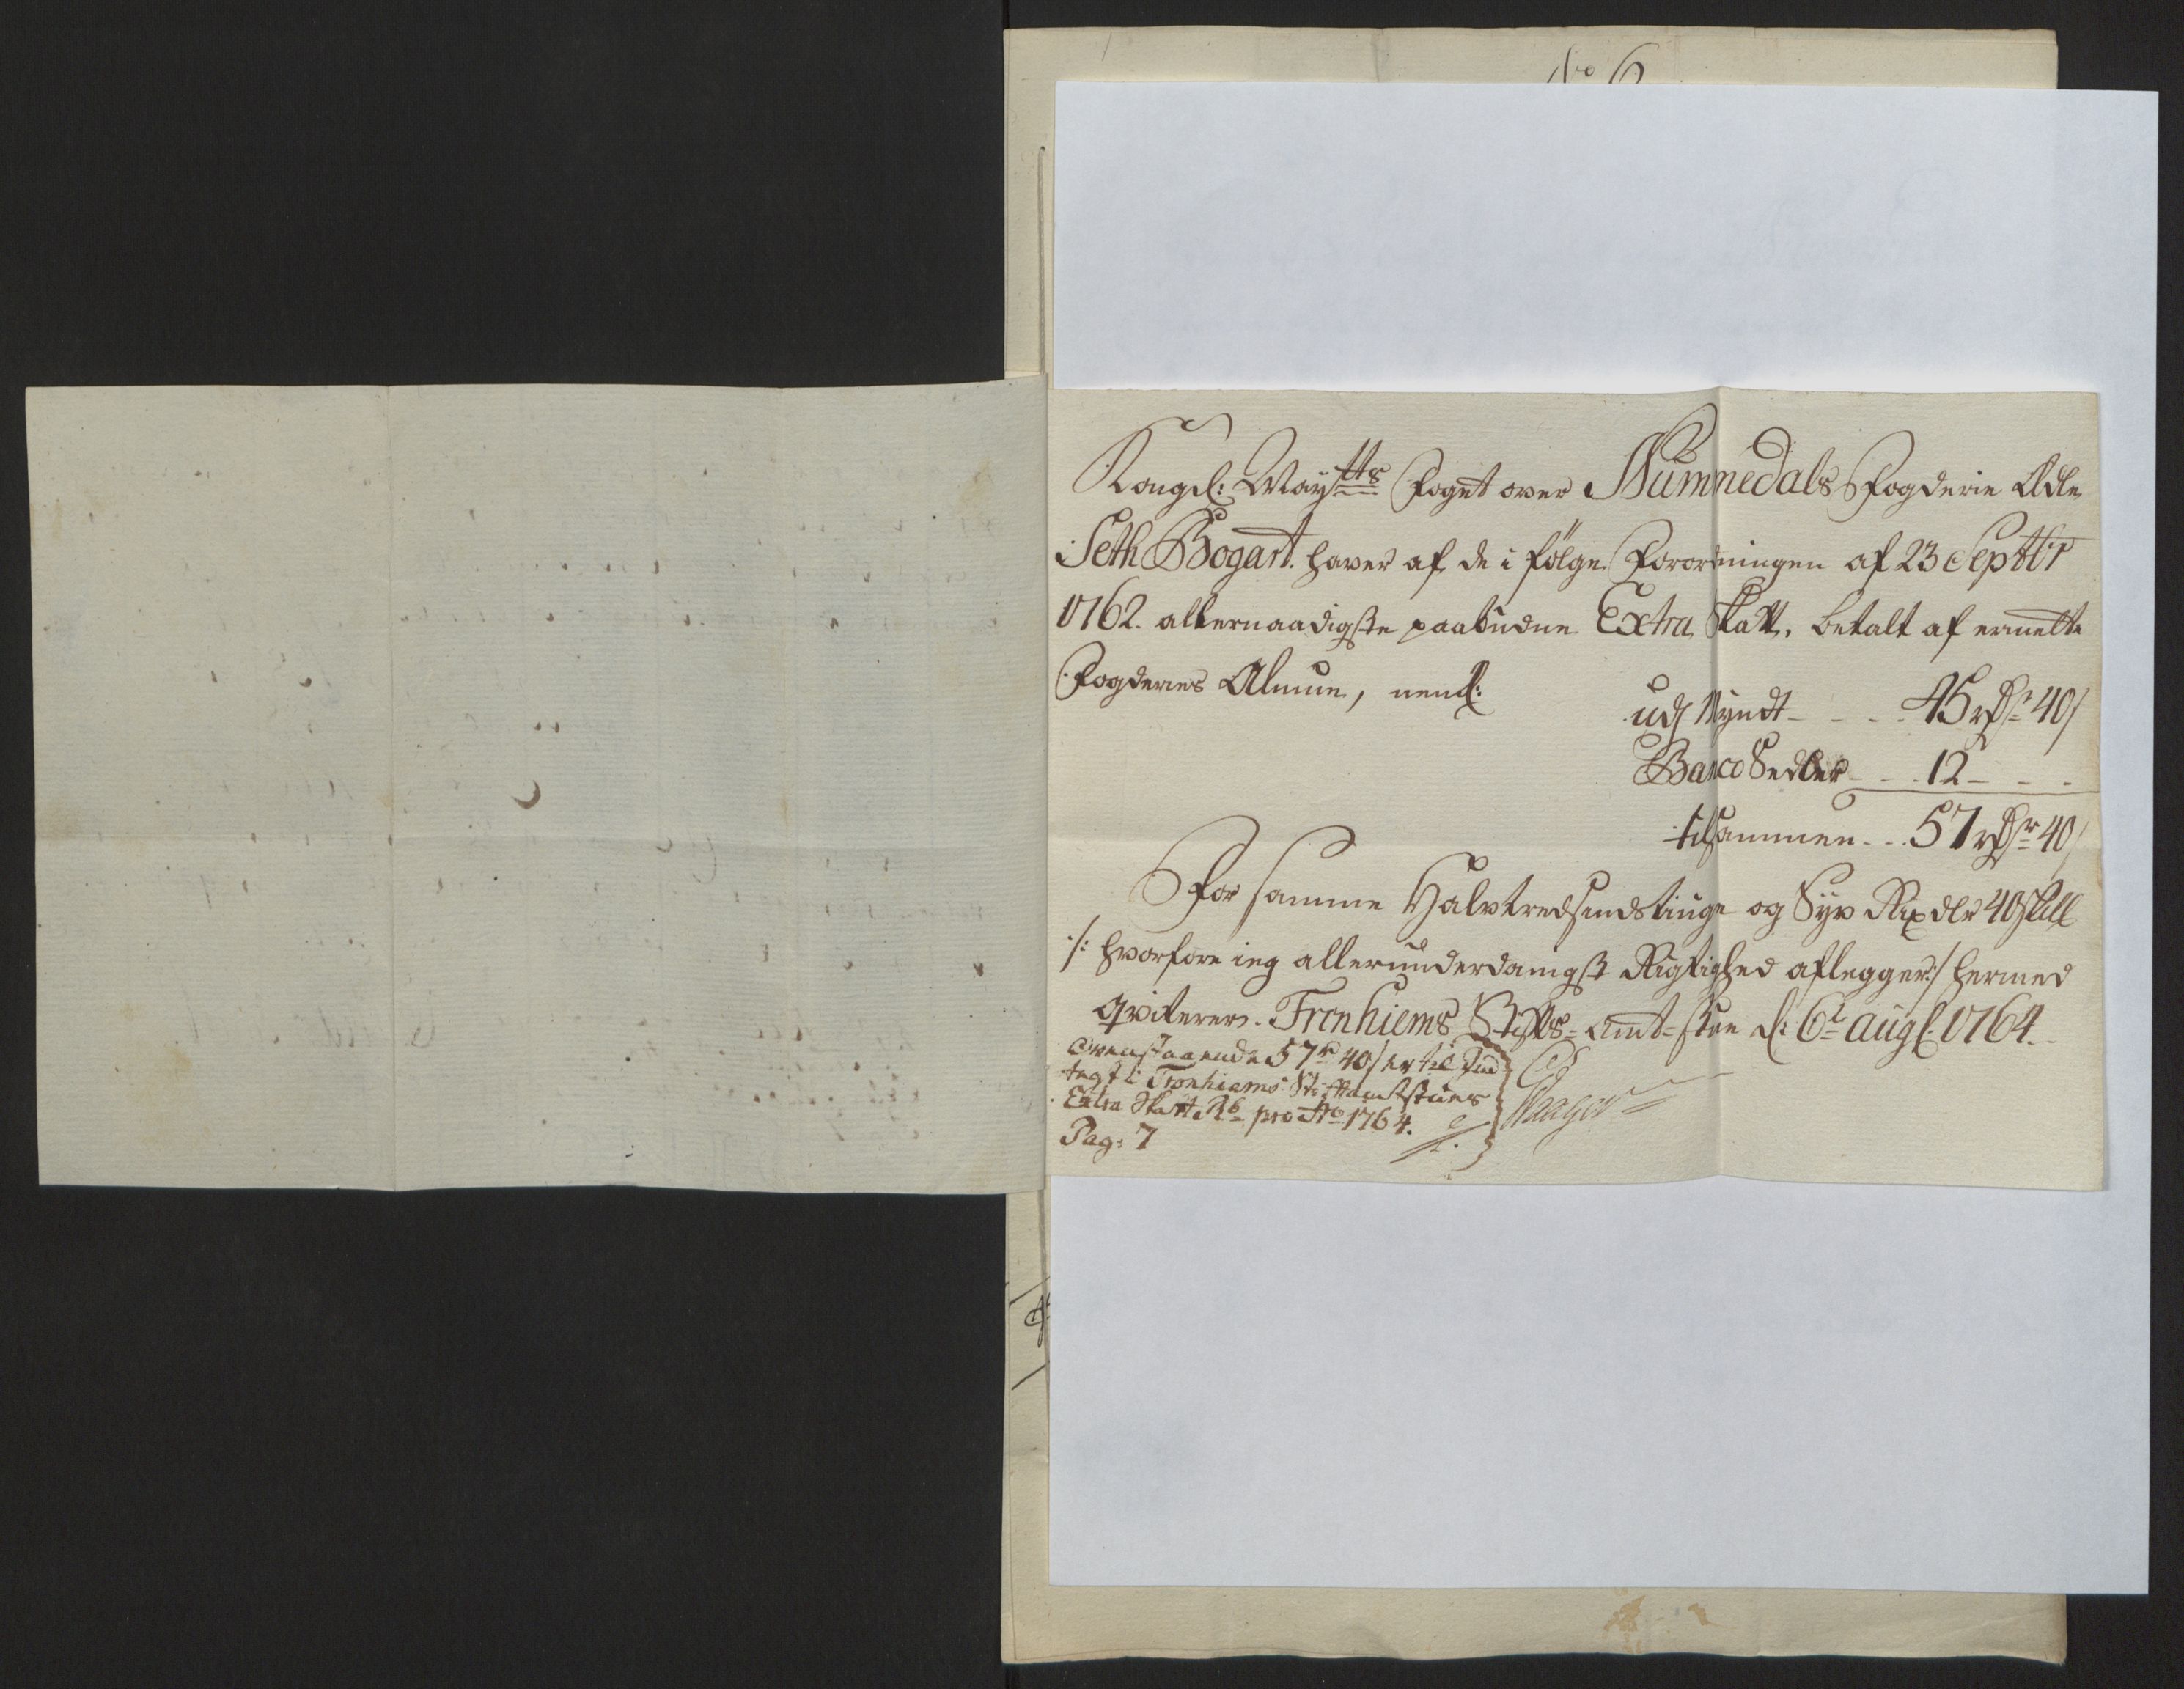 No 6
Kongel: Mayttts Foget over Nummedals Fogderie Ædle
Seth Bogart. haver af de i følge Forordningen af 23 Septbr
1762. allernaadigste paabudne Extra Skatt, betalt af ermelte
Fogderies Almue, neml:
udj Myndt - - - 45 rdr 40 s
Banco Sedler - - 12 - - -
tilsammen - - 57 rdr 40 s
For samme Halvtredsindstiuge og Syv Rixdlr 40 skill
/: hvorfore ieg allerunderdanigst Rigtighed aflegger :/ hermed
qviterer. Tronhiems Stifts-Amt-stue d: 6t Augl. 1764.
ovenstaaende 57 r 40 s er til Ind
tegt i Tronhiems Stiftamtstues
Extra Skatt Rb pro Ao 1764.
Pag: 7